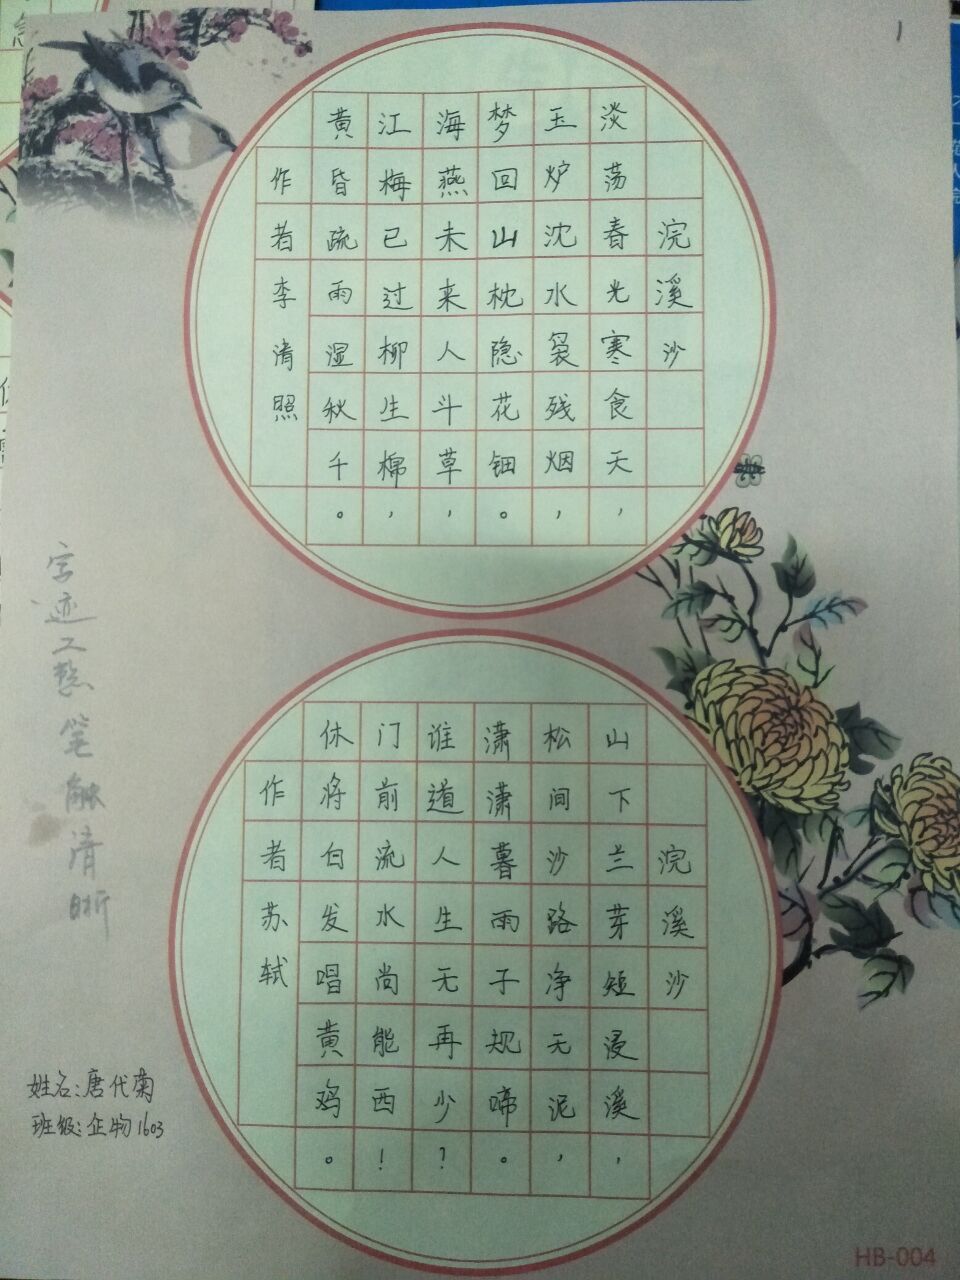 1
浣溪沙
淡荡春光寒食天，
玉炉沈水袅残烟，
梦回山枕隐花钿。
海燕未来人斗草，
江梅已过柳生棉，
黄昏疏雨湿秋千。
作者李清照
浣溪沙
山下兰芽短浸溪，
松间沙路净无泥，
潇潇暮雨子规啼。
谁道人生无再少？
门前流水尚能西！
休将白发唱黄鸡。
作者苏轼
字迹工整笔触清晰
姓名:唐代
班级:企物1603
HB-004